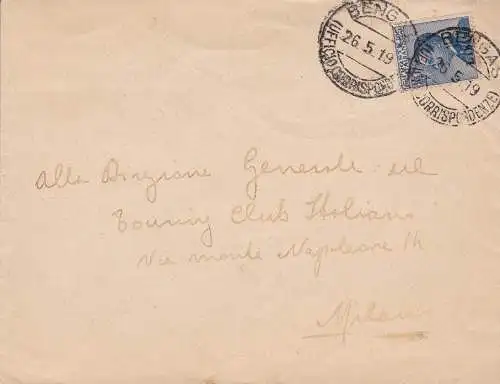 BENGASI
26.5.19
(UFFICIO CORRISPONDENZE)
BENGASI
26.5.19
CORRISPONDENZE)
Alla Direzione Generale del
Touring Club Italiano
Via Monte Napoleone 14
Milano